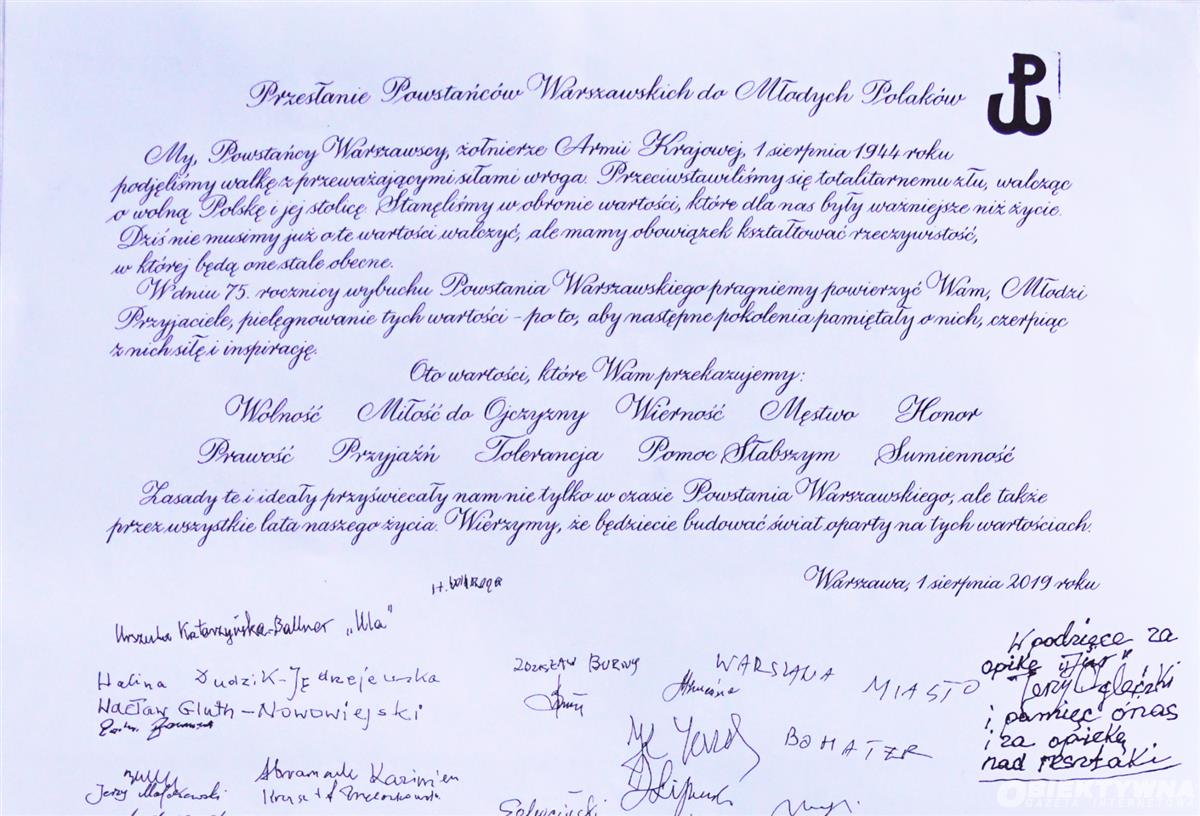 Przesłanie Powstańców Warszawskich do Młodych Polaków
My, Powstańcy Warszawscy, żołnierze Armii Krajowej, 1 sierpnia 1944 roku
podjęliśmy walkę z przeważającymi siłami wroga. Przeciwstawiliśmy się totalitarnemu złu, walcząc
o wolną Polskę i jej stolicę. Stanęliśmy w obronie wartości, które dla nas były ważniejsze niż życie.
Dziś nie musimy już o te wartości walczyć, ale mamy obowiązek kształtować rzeczywistość,
w której będą one stale obecne.
W dniu 75. rocznicy wybuchu Powstania Warszawskiego pragniemy powierzyć Wam, Młodzi
Przyjaciele, pielęgnowanie tych wartości – po to, aby następne pokolenia pamiętały o nich, czerpiąc
z nich siłę i inspirację.
Oto wartości, które Wam przekazujemy:
Wolność Miłość do Ojczyzny Wierność Męstwo Honor
Prawość Przyjaźń Tolerancja Pomoc Słabszym Sumienność
Zasady te i ideały przyświecały nam nie tylko w czasie Powstania Warszawskiego, ale także
przez wszystkie lata naszego życia. Wierzymy, że będziecie budować świat oparty na tych wartościach.
Warszawa, 1 sierpnia 2019 roku
Urszula Katarzyńska-Ballner „Ula"
Halina Dudzik-Jędrzejewska
Wacław Gluth-Nowowiejski
ZDZISŁAW
WARSZAWA
MIASTO
BOHATER
W podzięce za
opikę
Jerzy
i pamięć o nas
i za opiekę
nad resztaki
Jerzy
Kazimierz
OBIEKTYWNA
GAZETA INTERNETOWA